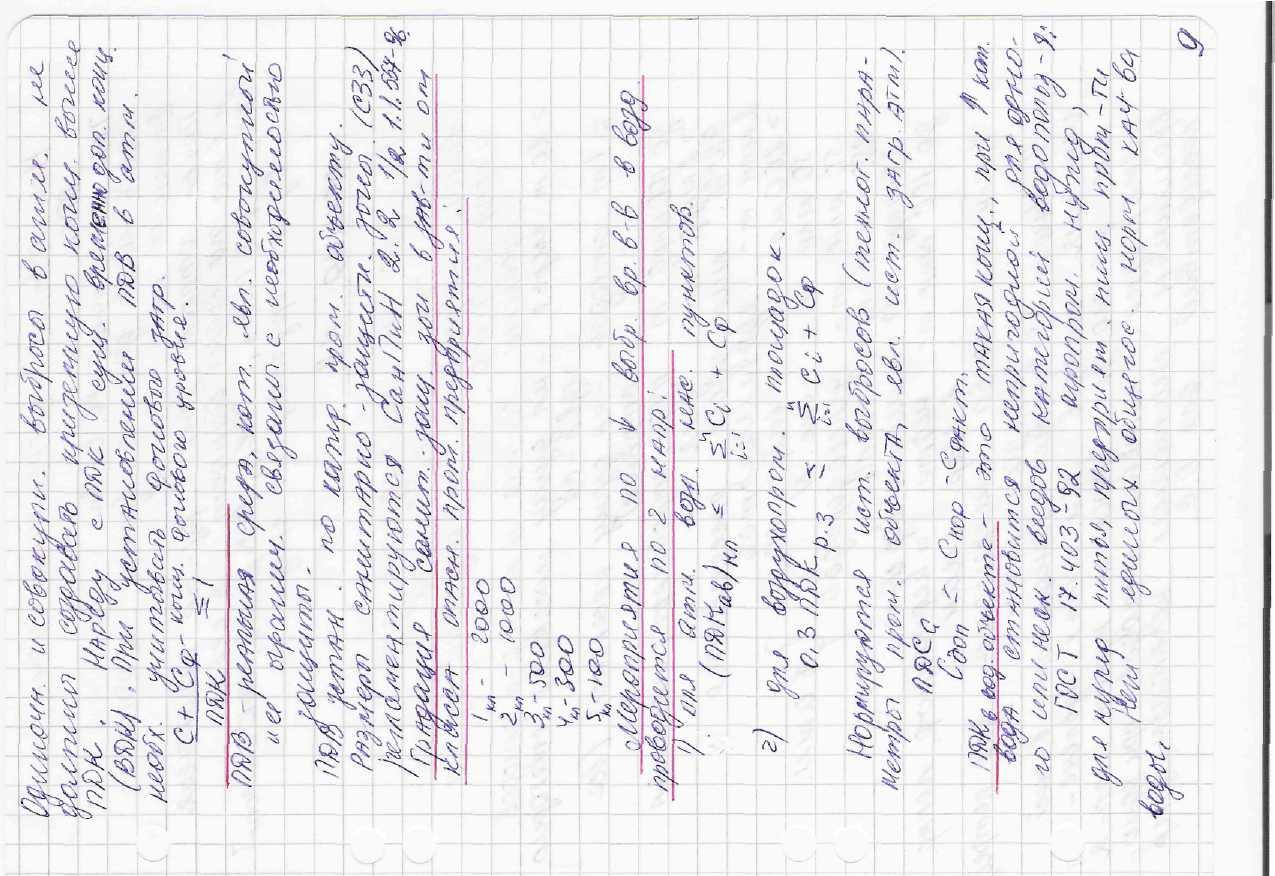 Одиночн. и совокупн. выбросы в атм. не
должны создавать приземную конц. выше
ПДК. Наряду с ПДК сущ. временно доп. конц.
(ВДК). При установлении ПДВ в атм.
необх. учитывать фонового загр.
C + Cф - конц. фонового уровня.
ПДК ≤ 1
ПДВ - реальная сред, кот. явл. совокупной
и её огранич. связан с необходимостью
защиты.
ПДВ устан. по кажд. пром. объекту.
Размеры санитарно-защитн. зоны (СЗЗ)
регламентируются СанПиН 2.2 1/2 1.1.554-96
Градация санит. защ. зон в зав-ти от
класса опасн. пром. предприятия:
1кл - 2000
2кл - 1000
3кл - 500
4кл - 300
5кл - 100
Мероприятия по ↓ выбр. вр. в-в в возд.
проводятся по 2 напр:
1) для атм. возд. насс. пунктов.
(ПДКав)нп ≤ n Σ i=1 Ci + Cф
2) для воздухопром. площадок.
0,3 ПДК р.з ≤ n Σ i=1 Ci + Cф
Нормируются ист. выбросов (технол. пара-
метры пром. объекта, явл. ист. загр. атм).
ПДС
Cдоп = Cнор - Cфакт.
ПДК в вод. объекте - это такая конц., при ↑ кот.
вода становится непригодной для одно-
го или неск. видов категорий водопольз-я:
ГОСТ 17.403-92 агропром. нужд,
для нужд питья, предприят. пищ. пром-ти,
для единых общегос. норм кач-ва
воды.
9